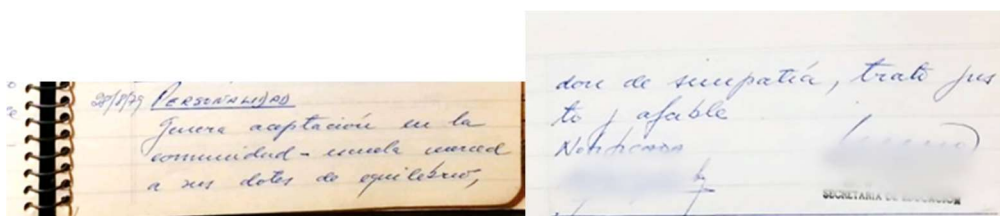 28/8/79 PERSONALIDAD
Genera aceptación en la
comunidad - escuela merced
a sus dotes de equilibrio,
don de simpatía, trato jus
to y afable
Notificada
SECRETARIA DE EDUCACION